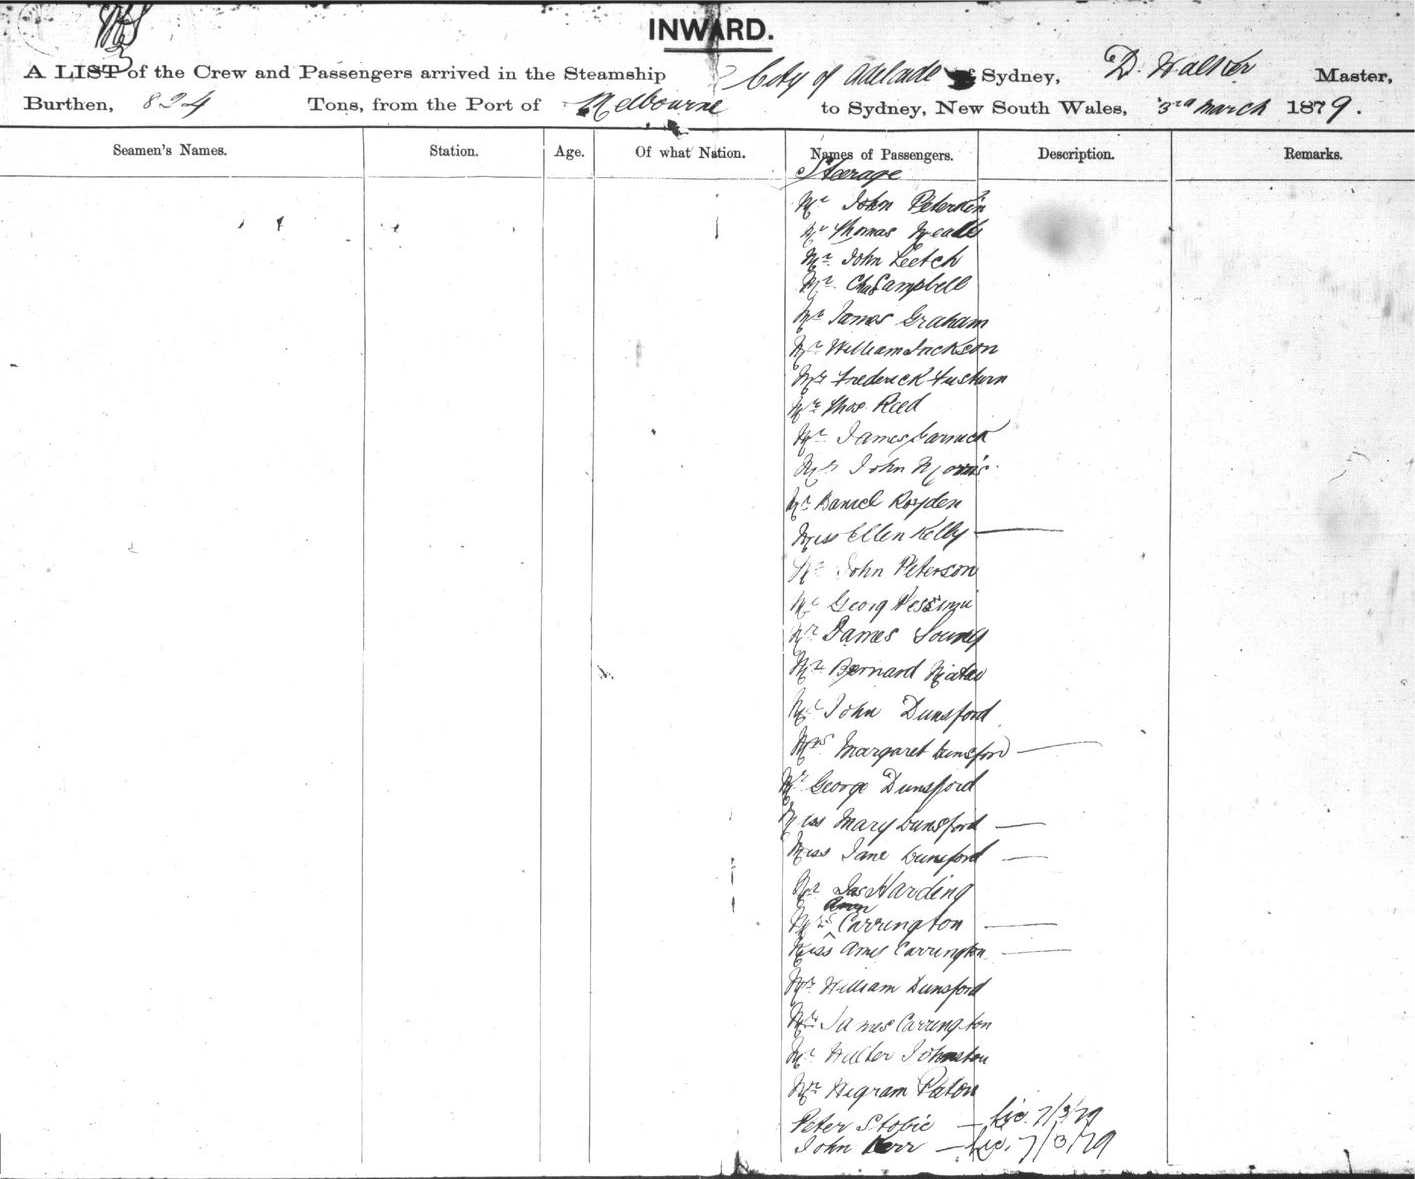 INWARD.
A LIST of the Crew and Passengers arrived in the Steamship City of Adelaide of Sydney, D. Walker Master,
Burthen, 824 Tons, from the Port of Melbourne to Sydney, New South Wales, 3rd March 1879.
Seamen's Names. Station. Age. Of what Nation. Names of Passengers. Description. Remarks.
Steerage
Mr John
Mr Thomas
Mr John Leetch
Mr Chas Campbell
Mr James Graham
Mr William Jackson
Mr Frederick
Mr Thos Reed
Mr James
Mr John Morris
Mr Daniel Royden
Miss Ellen Kelly —
Mr John Peterson
Mr Georg
Mr James Young
Mr Bernard
Mr John Dunsford
Mrs Margaret Dunsford —
Mr George Dunsford
Miss Mary Dunsford —
Miss Jane Dunsford —
Mr Jas Harding
Mrs Carrington —
Miss Carrington —
Mr William Dunsford
Mr James Carrington
Mr Johnston
Mr Paton
Peter Stobie — 7/3/79
John Kerr — 7/3/79